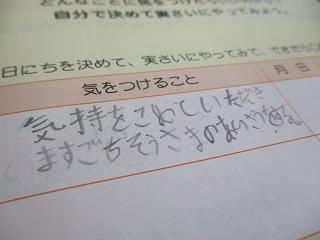 どんなことに気をつけたらいいか
自分で決めて実さいにやってみよう。
日にちを決めて、実さいにやってみて、できたら
気をつけること
月 日
気持をこめていただき
ますごちそうさまのあいさつをする。